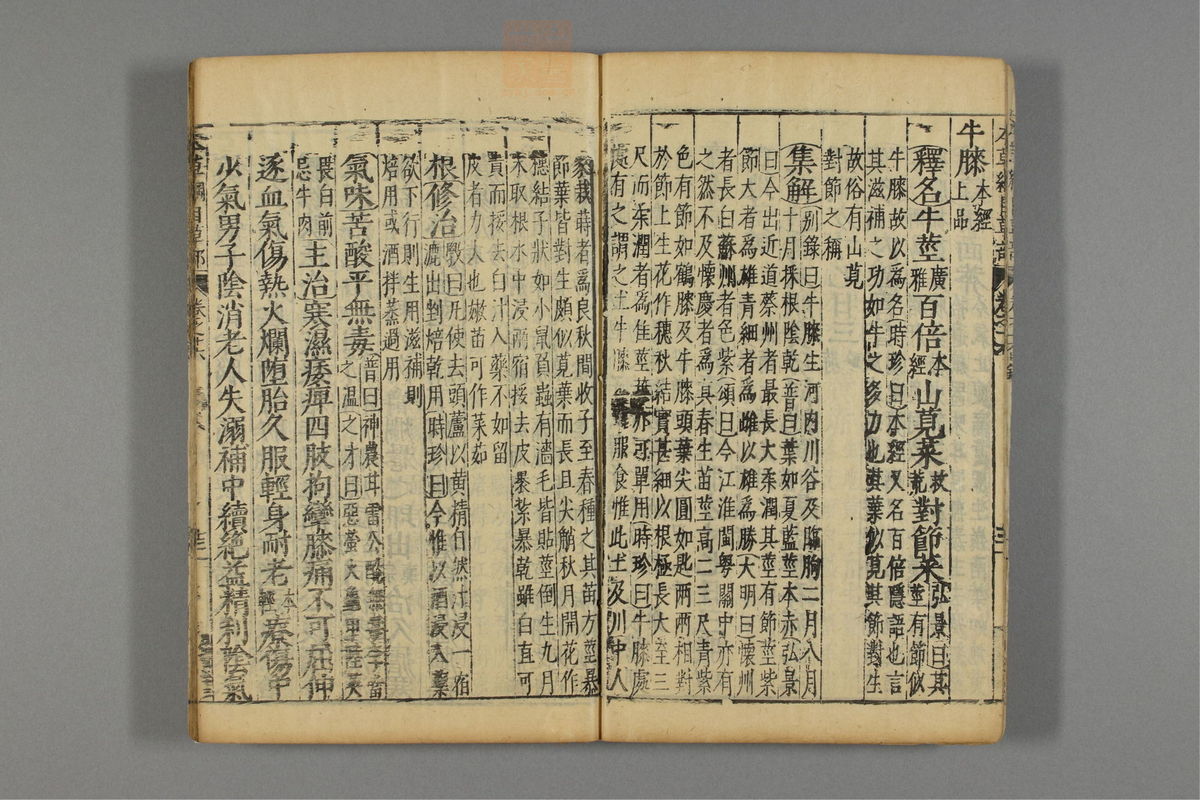 牛膝本經上品
釋名牛莖廣雅百倍本經山莧菜救荒對節菜弘景曰其莖有節似
牛膝故以爲名時珍曰本經又名百倍隱語也言
其滋補之功如牛之多力也其葉似莧其節對生
故俗有山莧
對節之稱
集解別錄曰牛膝生河內川谷及臨朐二月八月
十月採根陰乾普曰葉如夏藍莖本赤弘景
曰今出近道蔡州者最長大柔潤其莖有節莖紫
節大者爲雄青細者爲雌以雄爲勝大明曰懷州
者長白蘇州者色紫頌曰今江淮閩粤關中亦有
之然不及懷慶者爲真春生苗莖高二三尺青紫
色有節如鶴膝及牛膝頭葉尖圓如匙兩兩相對
於節上生花作穗秋結實甚細以根極長大至三
尺而柔潤者爲佳莖葉亦可單用時珍曰牛膝處
處有之謂之土牛膝服食惟此土及川中人
家栽蒔者爲良秋間收子至春種之其苗方莖暴
節葉皆對生頗似莧葉而長且尖艄秋月開花作
穗結子狀如小鼠負蟲有濇毛皆貼莖倒生九月
末取根水中浸兩宿挼去皮暴紮暴乾雖白直可
貴而挼去白汁入藥不如留
皮者力大也嫩苗可作菜茹
根修治斅曰凡使去頭蘆以黃精自然汁浸一宿
漉出剉焙乾用時珍曰今惟以酒浸入藥
欲下行則生用滋補則
焙用或酒拌蒸過用
氣味苦酸平無毒普曰神農甘雷公酸無毒李當
之溫之才曰惡螢火龜甲陸英
畏白前
忌牛肉主治寒濕痿痺四肢拘攣膝痛不可屈伸
逐血氣傷熱火爛墮胎久服輕身耐老本經療傷中
少氣男子陰消老人失溺補中續絕益精利陰氣
本草綱目草部
卷之十六